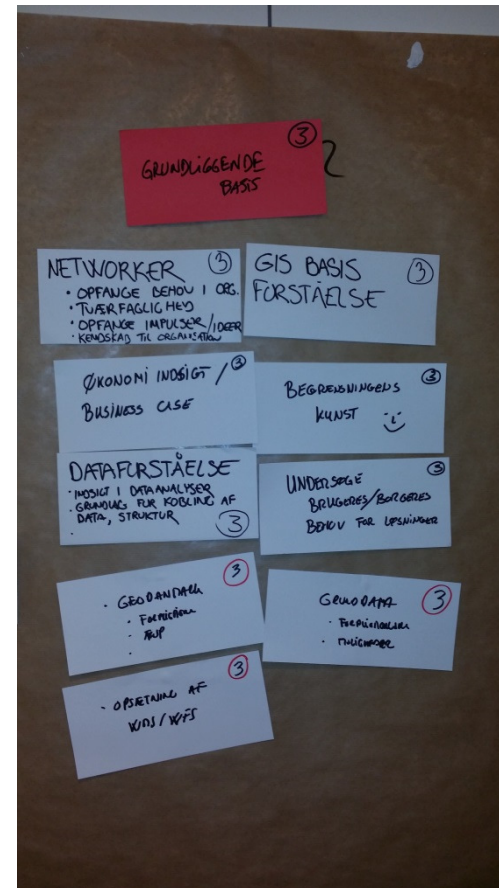 GRUNDLIGGENDE
BASIS
3
2
NETWORKER 3
• OPFANGE BEHOV I ORG.
• TVÆRFAGLIGHED
• OPFANGE IMPULSER/IDEER
• KENDSKAB TIL ORGANISATION
GIS BASIS 3
FORSTÅELSE
ØKONOMI INDSIGT / 3
BUSINESS CASE
BEGRENSNINGENS 3
KUNST
DATAFORSTÅELSE
• INDSIGT I DATAANALYSER
• GRUNDLAG FOR KOBLING AF
DATA, STRUKTUR
3
UNDERSØGE 3
BRUGERES/BORGERES
BEHOV FOR LØSNINGER
3
• GEODANMARK
•
•
GRUNDDATA 3
•
•
3
• OPSÆTNING AF
WMS/WFS